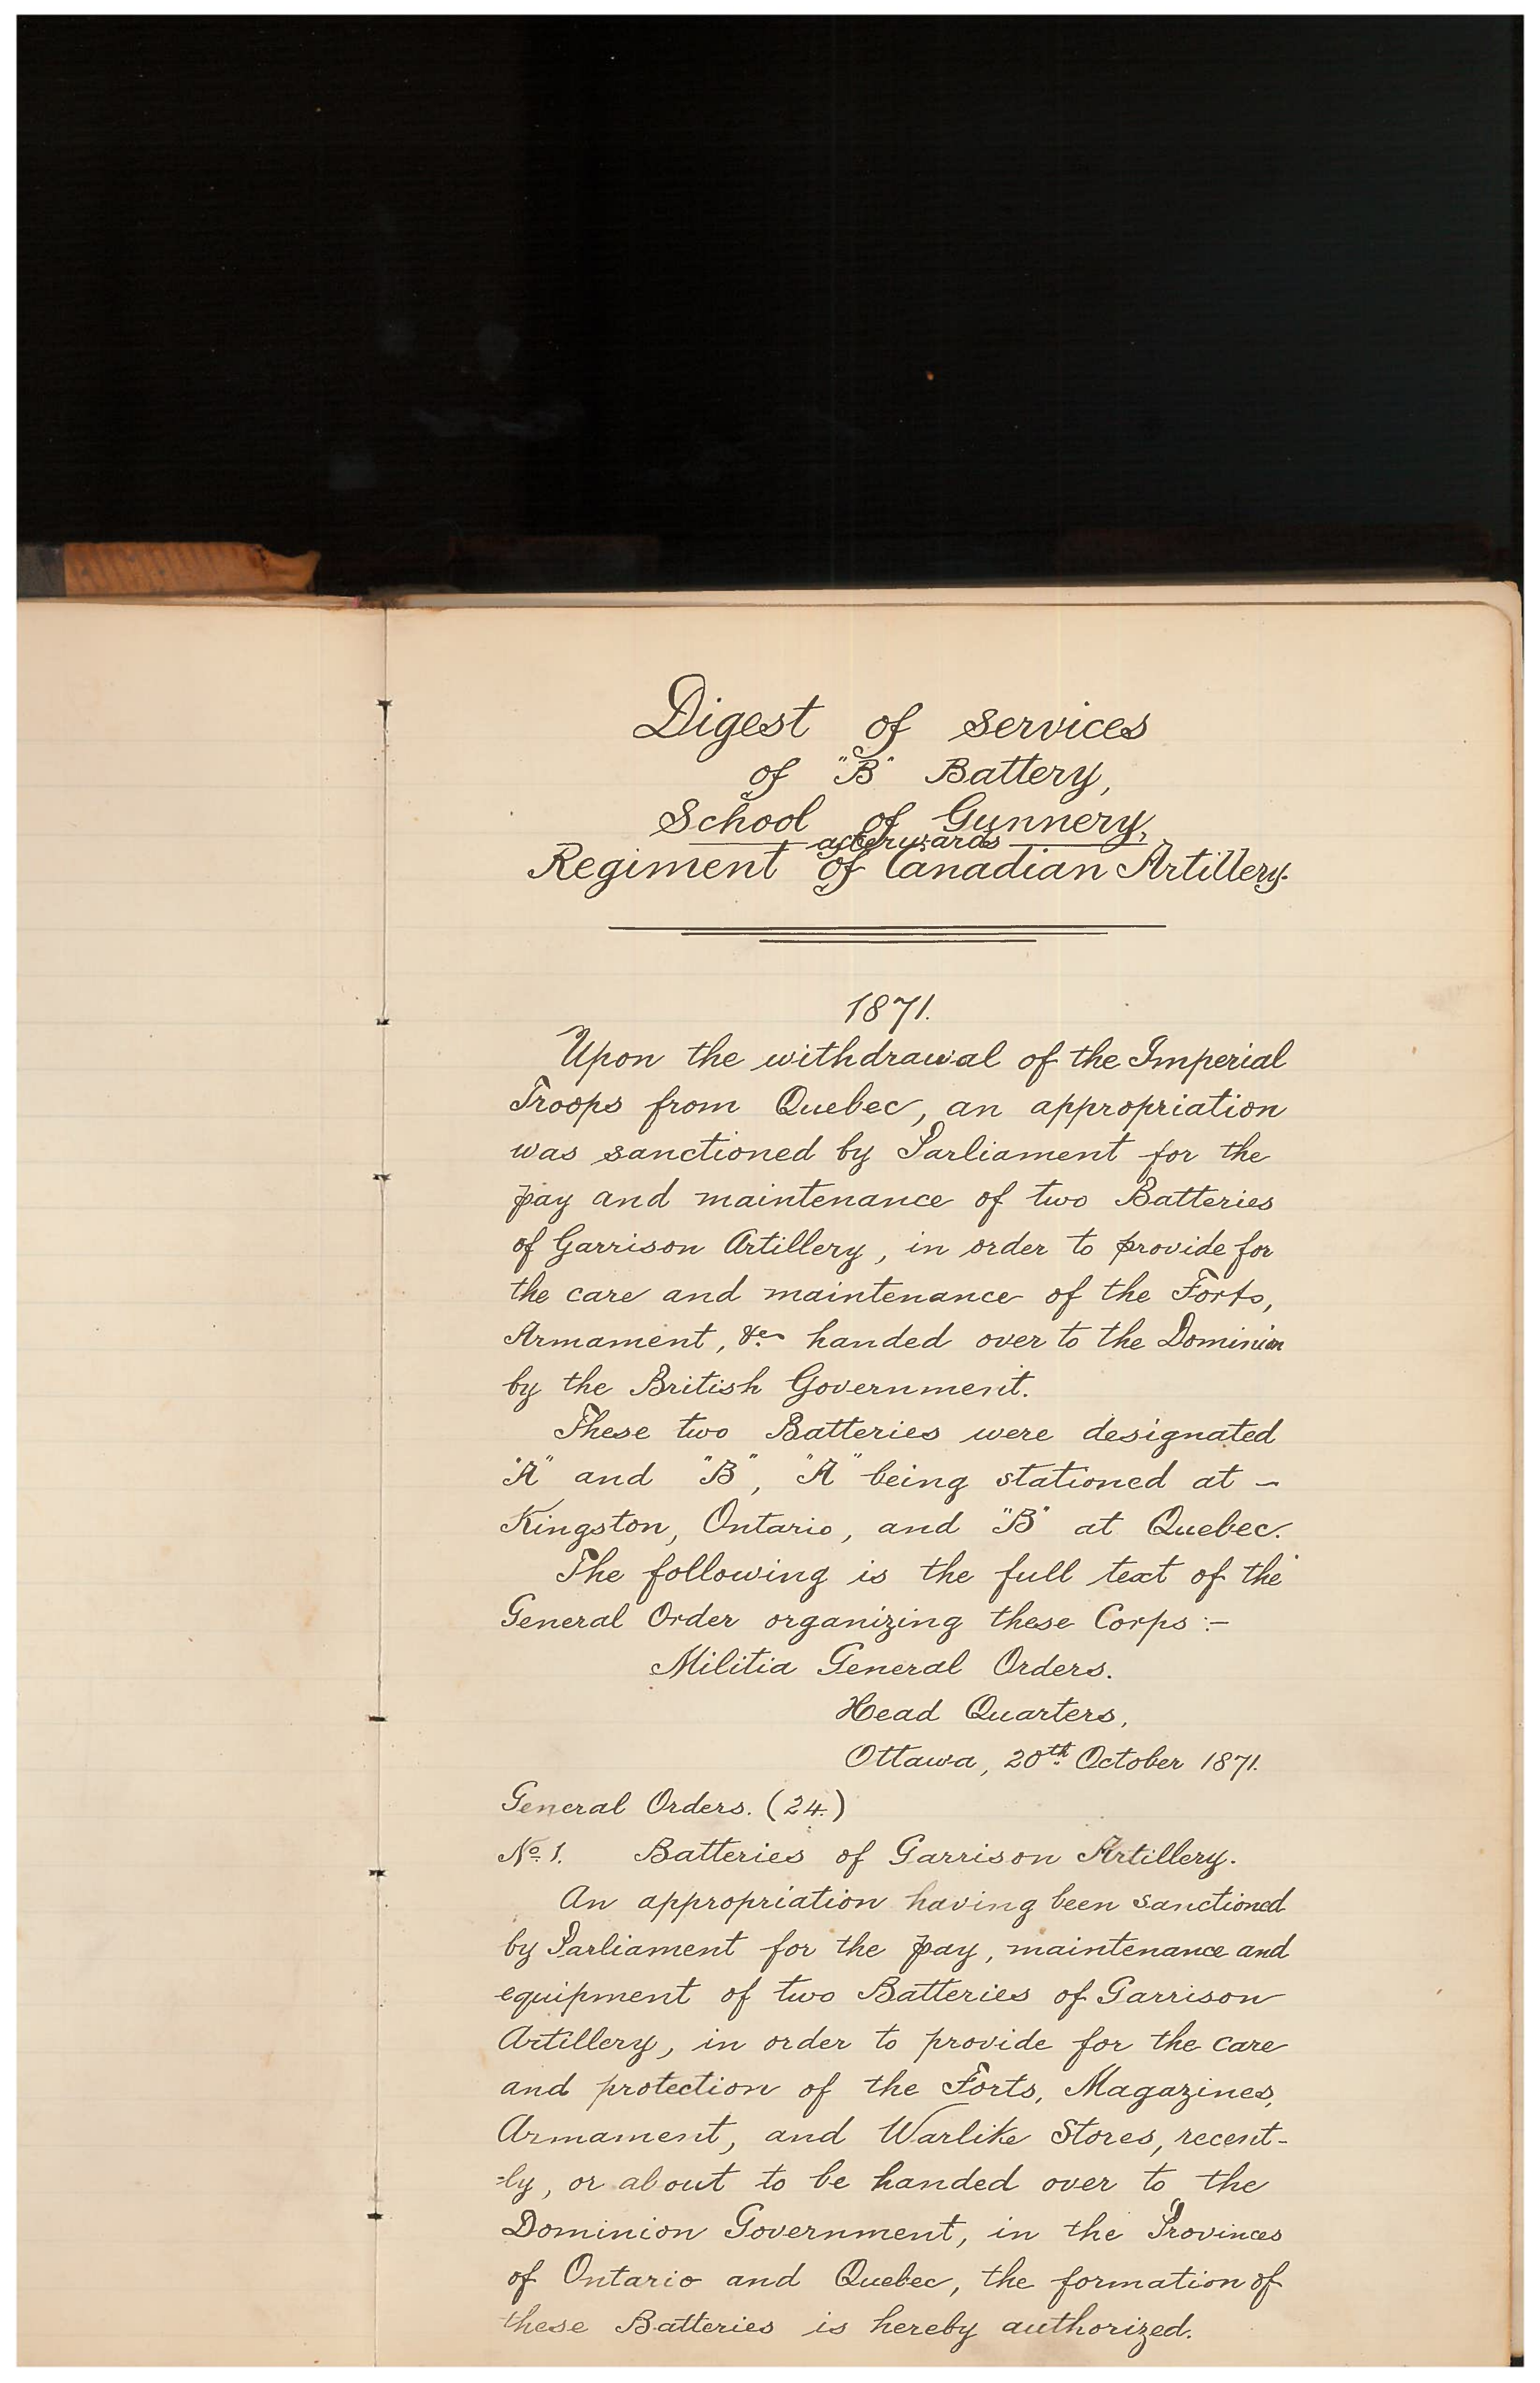 Digest of Services
of "B" Battery,
School of Gunnery,
afterwards
Regiment of Canadian Artillery.
1871.
Upon the withdrawal of the Imperial
Troops from Quebec, an appropriation
was sanctioned by Parliament for the
pay and maintenance of two Batteries
of Garrison Artillery, in order to provide for
the care and maintenance of the Forts,
Armament, &c. handed over to the Dominion
by the British Government.
These two Batteries were designated
"A" and "B", "A" being stationed at –
Kingston, Ontario, and "B" at Quebec.
The following is the full text of the
General Order organizing these Corps :–
Militia General Orders.
Head Quarters,
Ottawa, 20th October 1871.
General Orders. (24.)
No. 1. Batteries of Garrison Artillery.
An appropriation having been sanctioned
by Parliament for the pay, maintenance and
equipment of two Batteries of Garrison
Artillery, in order to provide for the care
and protection of the Forts, Magazines,
Armament, and Warlike Stores, recent-
-ly, or about to be handed over to the
Dominion Government, in the Provinces
of Ontario and Quebec, the formation of
these Batteries is hereby authorized.